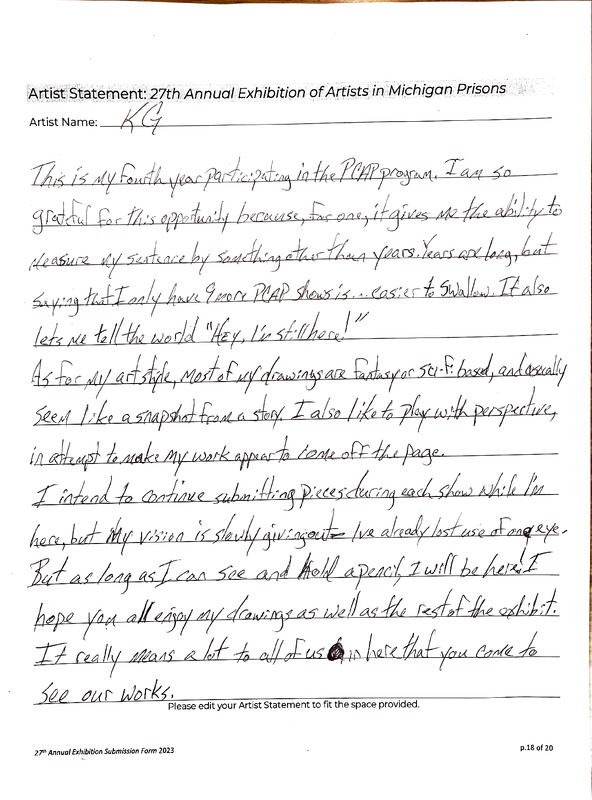 Artist Statement: 27th Annual Exhibition of Artists in Michigan Prisons
Artist Name: KG
This is my fourth year participating in the PCAP program. I am so
grateful for this opportunity because, for one, it gives me the ability to
measure my sentence by something other than years. Years are long, but
saying that I only have 9 more PCAP shows is...easier to swallow. It also
lets me tell the world "Hey, I'm still here!"
As for my art style, most of my drawings are fantasy or sci-fi based, and usually
seem like a snapshot from a story. I also like to play with perspective,
in attempt to make my work appear to come off the page.
I intend to continue submitting pieces during each show while I'm
here, but my vision is slowly giving out- I've already lost use of one eye.
But as long as I can see and hold a pencil, I will be here! I
hope you all enjoy my drawings as well as the rest of the exhibit.
It really means a lot to all of us in here that you come to
see our works.
Please edit your Artist Statement to fit the space provided.
27th Annual Exhibition Submission Form 2023
p.18 of 20